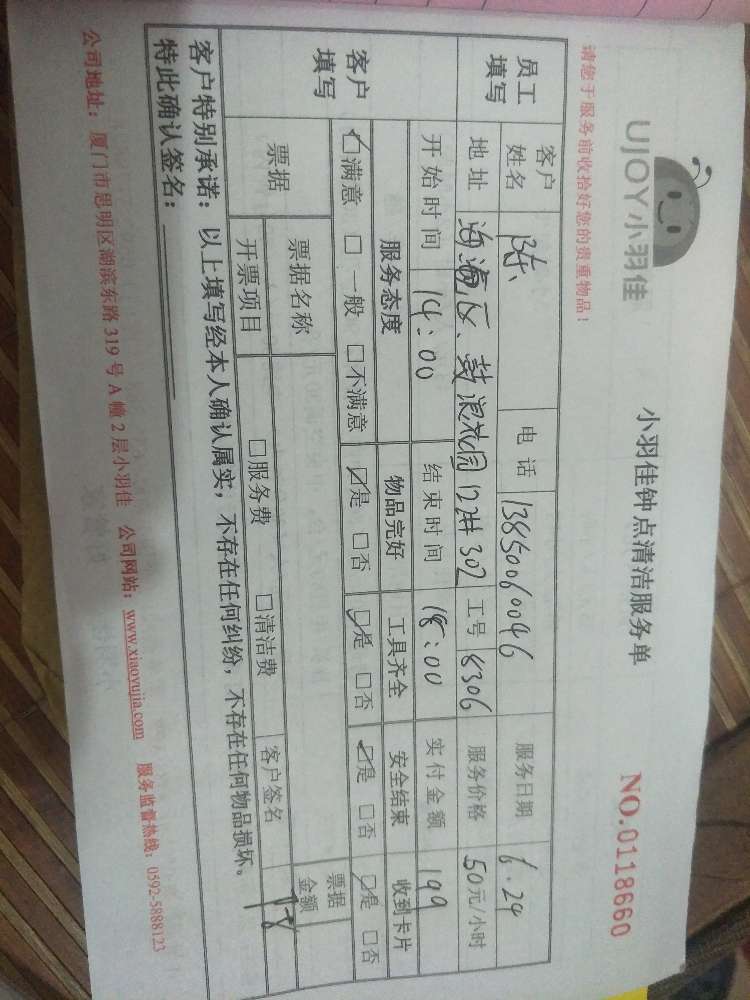 UJOY小羽佳
小羽佳钟点清洁服务单
NO.0118660
请您于服务前收拾好您的贵重物品！
员工填写 客户姓名 陈 电话 13850060046 服务日期 6.29
地址 海沧区、鼓浪花园 302 工号 8306 服务价格 50元/小时
开始时间 14:00 结束时间 18:00 实付金额 199
客户填写 服务态度 物品完好 工具齐全 安全结束 收到卡片
☑满意 □一般 □不满意 ☑是 □否 ☑是 □否 ☑是 □否 ☑是 □否
票据 票据名称 票据金额
开票项目 □服务费 □清洁费 客户签名
客户特别承诺：以上填写经本人确认属实，不存在任何纠纷，不存在任何物品损坏。
特此确认签名：
公司地址：厦门市思明区湖滨东路319号A幢2层小羽佳 公司网站：www.xiaoyujia.com 服务监督热线：0592-5888123